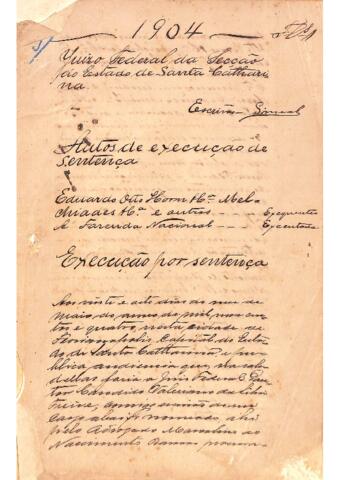 1904
Juizo Federal da Secção
do Estado de Santa Cathari
na
Escrivão
Autos de execução de
sentença
Eduardo Otto Horn Hª Mel-
chiades Hª e outros -- Exequentes
A Fazenda Nacional -- Executada
Execução por sentença
Aos vinte e oito dias do mez de
maio do anno de mil, nove cen
tos e quatro, nesta cidade de
Florianopolis, Capital do Esta
do de Santa Catharina, e pu
blica audiencia que, na sala
dellas fazia o Juiz Federal Dou
tor Candido Valeriano da Silva
Freire, comigo escrivão de seu
cargo abaixo nomeado, ahi
pelo Advogado Manoelino do
Nascimento Ramos procura-